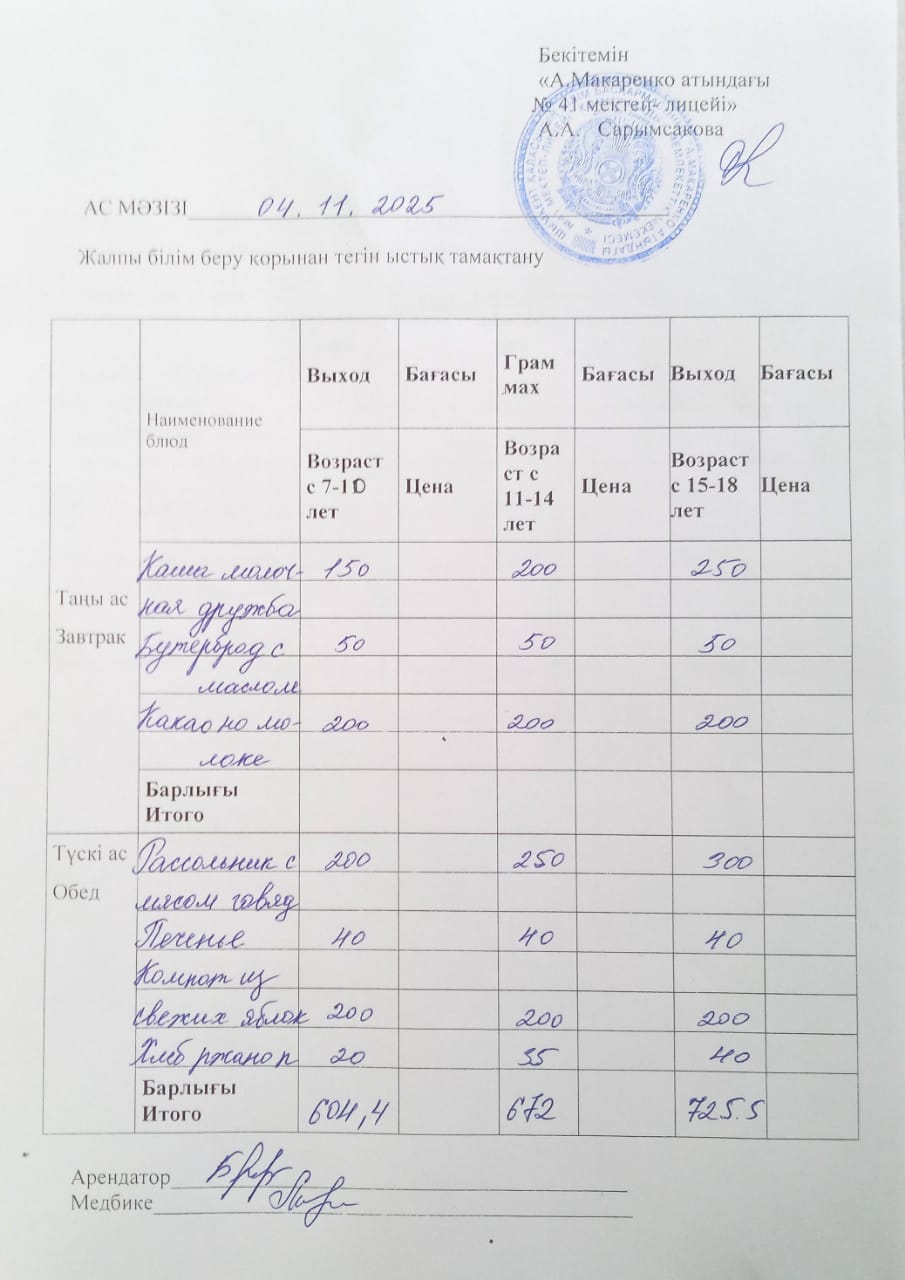 Бекітемін
«А.Макаренко атындағы
№ 41 мектеп- лицейі»
А.А. Сарымсакова
АС МӘЗІЗІ 04. 11. 2025
Жалпы білім беру қорынан тегін ыстық тамақтану
Наименование блюд Выход Бағасы Грам мах Бағасы Выход Бағасы
Возраст с 7-10 лет Цена Возра ст с 11-14 лет Цена Возраст с 15-18 лет Цена
Таңы ас
Завтрак
Каша молоч- 150 200 250
ная дружба
Бутерброд с 50 50 50
маслом
Какао но мо- 200 200 200
локе
Барлығы
Итого
Түскі ас
Обед
Рассольник с 200 250 300
мясом говяд
Печенье 40 40 40
Компот из
свежих яблок 200 200 200
Хлеб ржано п 20 35 40
Барлығы
Итого 604,4 672 725.5
Арендатор
Медбике